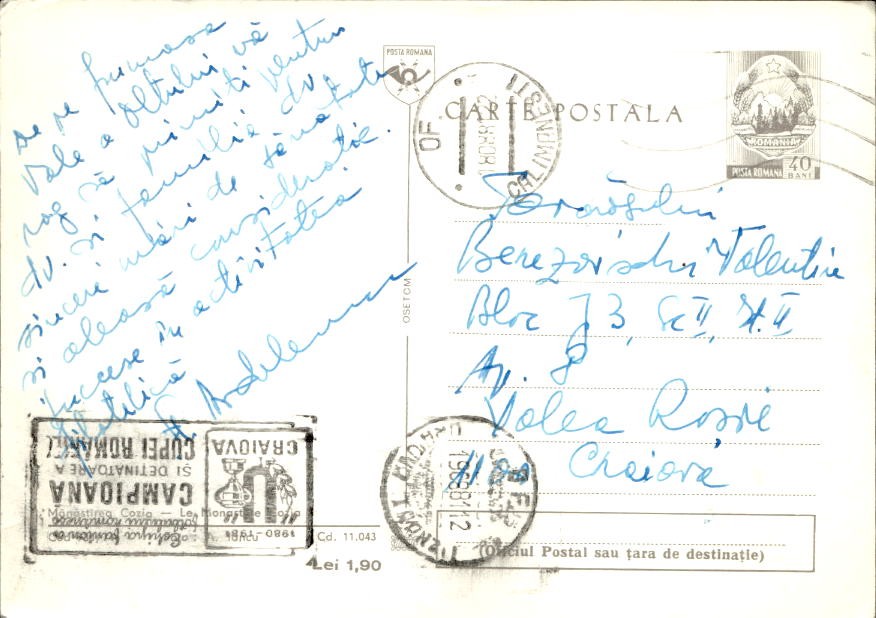 De pe frumoasa
Vale a Oltului vă
rog să primiți pentru
dv. și familia dv.
sincere urări de sănătate
și aleasă considerație.
Succese în activitatea
filatelică
POSTA ROMANA
CARTE POSTALA
OF
CALIMANESTI
ROMANIA
POSTA ROMANA
40
BANI
Tovarășului
Berezovschi Valentin
Bloc J3, Sc II, Et. II
Ap. 8
Valea Roșie
Craiova
OSETCM
CRAIOVA
1980-1981
CAMPIOANA
ȘI DEȚINATOARE A
CUPEI ROMÂNIEI
Mânăstirea Cozia — Le Monastère Cozia
Cd. 11.043
Lei 1,90
(Oficiul Postal sau țara de destinație)